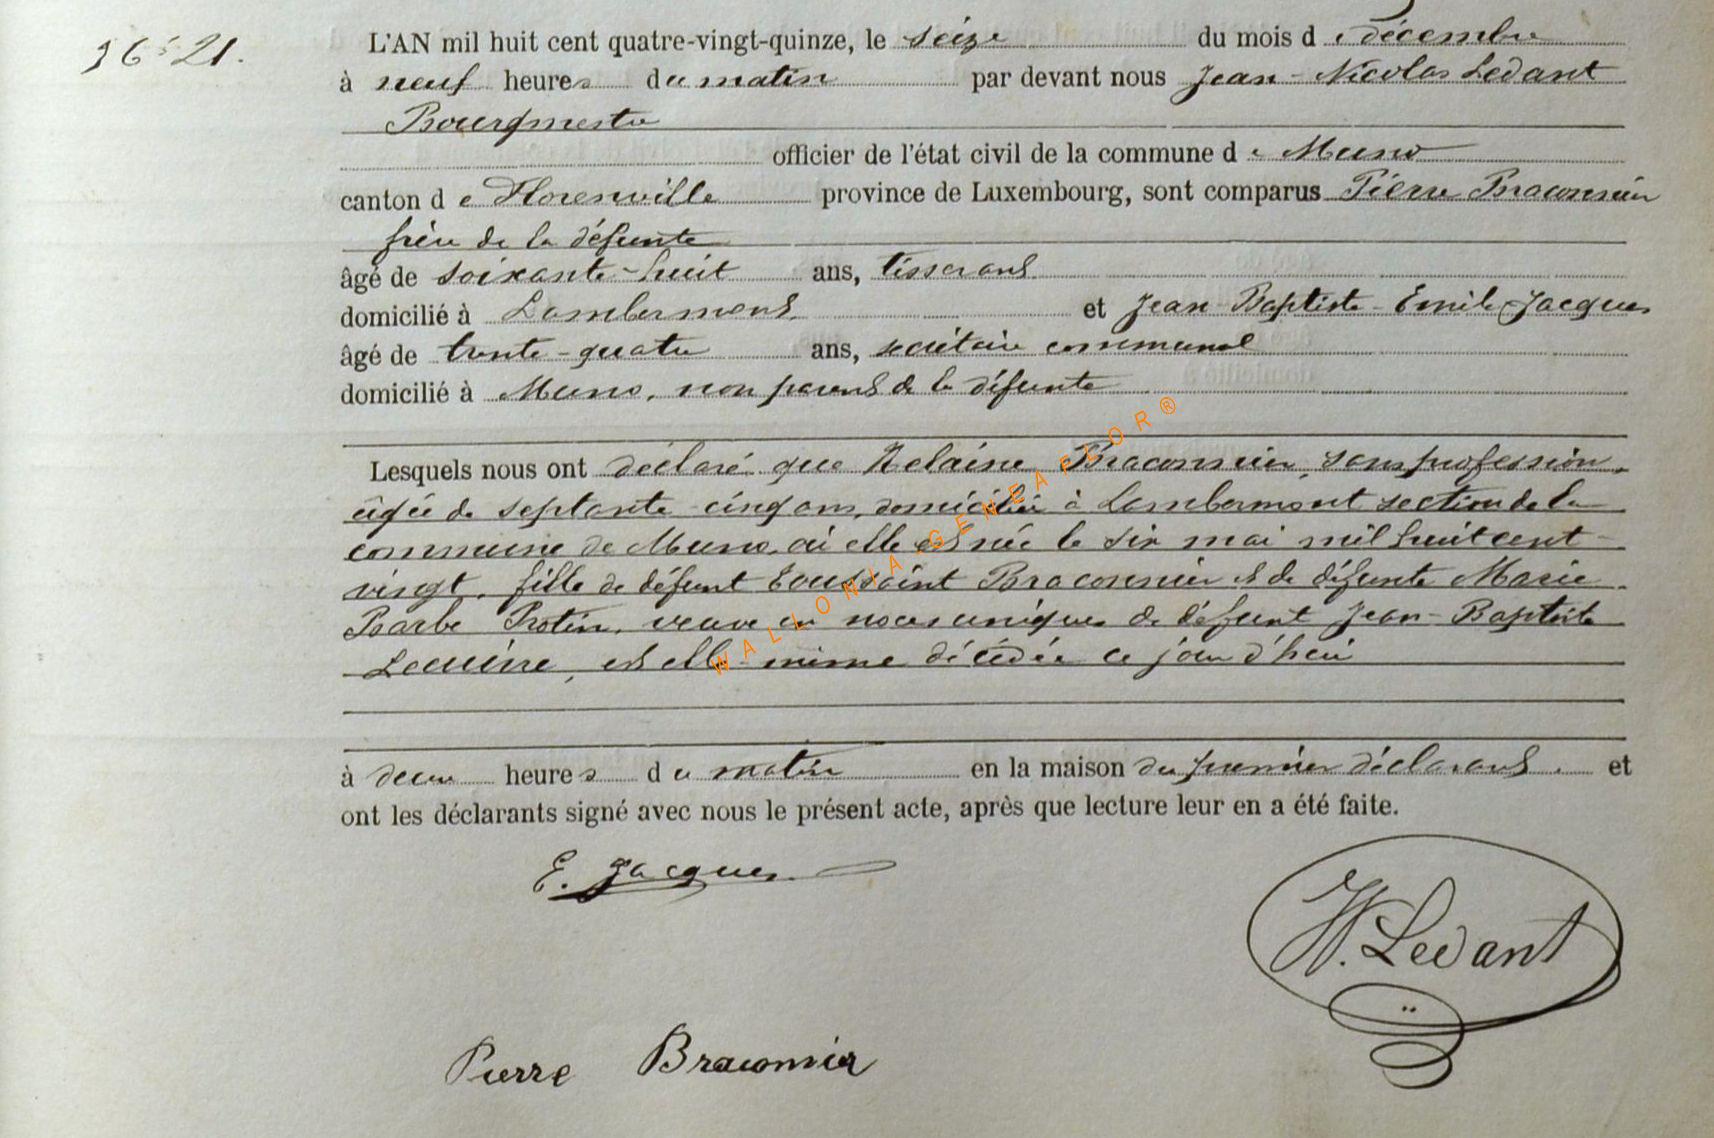 N° 21.
L'AN mil huit cent quatre-vingt-quinze, le seize du mois de décembre
à neuf heures du matin par devant nous Jean-Nicolas Ledant
Bourgmestre
officier de l'état civil de la commune de Muno
canton de Florenville province de Luxembourg, sont comparus Pierre Braconnier
frère de la défunte
âgé de soixante-huit ans, tisserand
domicilié à Lambermont et Jean-Baptiste-Emile Jacques
âgé de trente-quatre ans, secrétaire communal
domicilié à Muno, non parent de la défunte
Lesquels nous ont déclaré que Braconnier, sans profession,
âgée de septante-cinq ans, domiciliée à Lambermont section de la
commune de Muno, où elle est née le six mai mil huit cent
vingt, fille de défunt Toussaint Braconnier et de défunte Marie
Barbe Protin, veuve en noces uniques de défunt Jean-Baptiste
est elle-même décédée ce jour d'hui
à deux heures du matin en la maison du premier déclarant. et
ont les déclarants signé avec nous le présent acte, après que lecture leur en a été faite.
E. Jacques
N. Ledant
Pierre Braconnier
WALLONIA-GENEAFLOR®